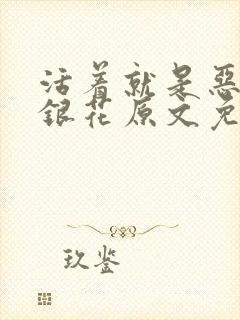 活着就是恶
銀花原文免
玖鉴